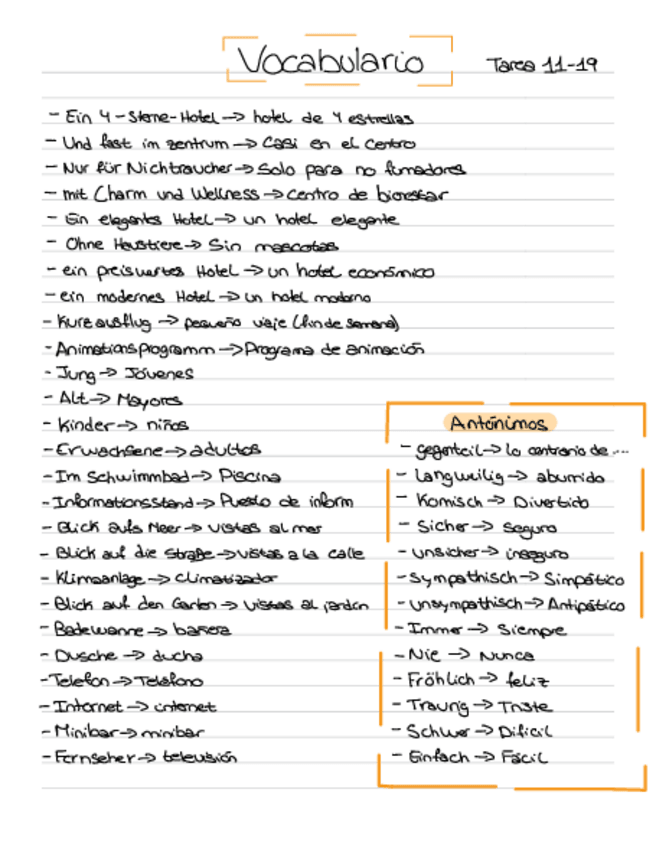 Vocabulario
Tarea 11-19
- Ein 4-Sterne-Hotel → hotel de 4 estrellas
- Und fast im zentrum → Casi en el centro
- Nur für Nichtraucher → Solo para no fumadores
- mit Charm und Wellness → centro de bienestar
- Ein elegantes Hotel → un hotel elegante
- Ohne Haustiere → Sin mascotas
- ein preiswertes Hotel → un hotel económico
- ein modernes Hotel → un hotel moderno
- Kurzausflug → pequeño viaje (fin de semana)
- Animationsprogramm → Programa de animación
- Jung → Jóvenes
- Alt → Mayores
- Kinder → niños
- Erwachsene → adultos
- Im Schwimmbad → Piscina
- Informationsstand → Puesto de inform
- Blick aufs Meer → vistas al mar
- Blick auf die Straße → vistas a la calle
- Klimaanlage → climatizador
- Blick auf den Garten → vistas al jardín
- Badewanne → bañera
- Dusche → ducha
- Telefon → Teléfono
- Internet → internet
- Minibar → minibar
- Fernseher → televisión
Antónimos
- gegenteil → lo contrario de ...
- Langweilig → aburrido
- Komisch → Divertido
- Sicher → seguro
- unsicher → inseguro
- Sympathisch → Simpático
- unsympathisch → Antipático
- Immer → Siempre
- Nie → Nunca
- Fröhlich → feliz
- Traurig → Triste
- Schwer → Dificil
- Einfach → Fácil